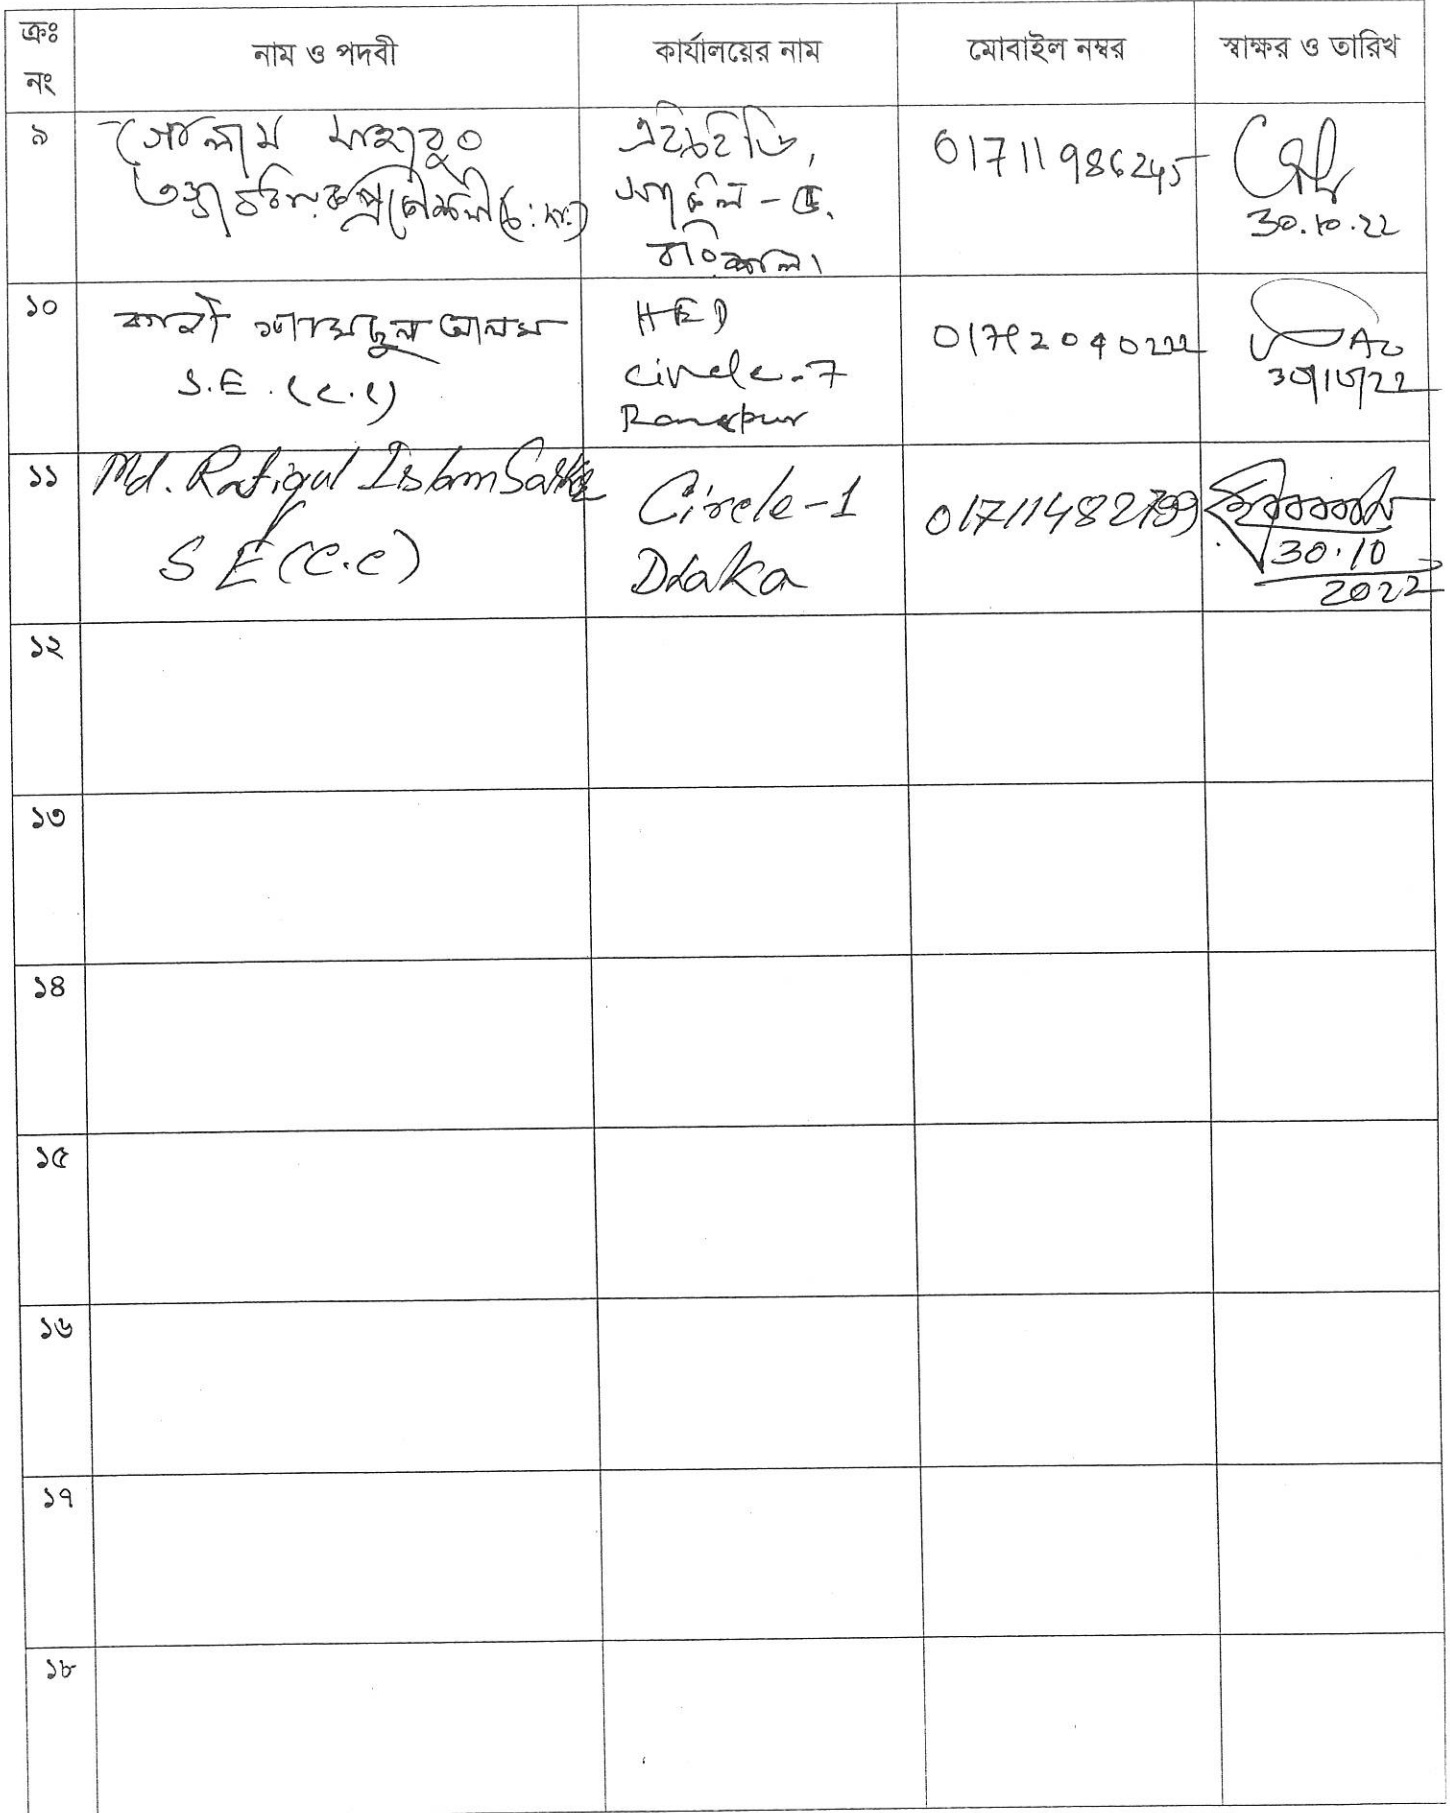 ক্রঃ নং
নাম ও পদবী
কার্যালয়ের নাম
মোবাইল নম্বর
স্বাক্ষর ও তারিখ
৯
গোলাম মাহাবুব
তত্ত্বাবধায়ক প্রকৌশলী (চ: দা:)
এইচইডি,
সার্কেল - ৫,
বরিশাল।
01711986245
30.10.22
১০
কাজী শামছুল আলম
S.E. (C.C)
HED
Circle-7
Rangpur
30/10/22
১১
Md. Rafiqul Islam Sarker
SE (C.C)
Circle-1
Dhaka
30.10
2022
১২
১৩
১৪
১৫
১৬
১৭
১৮